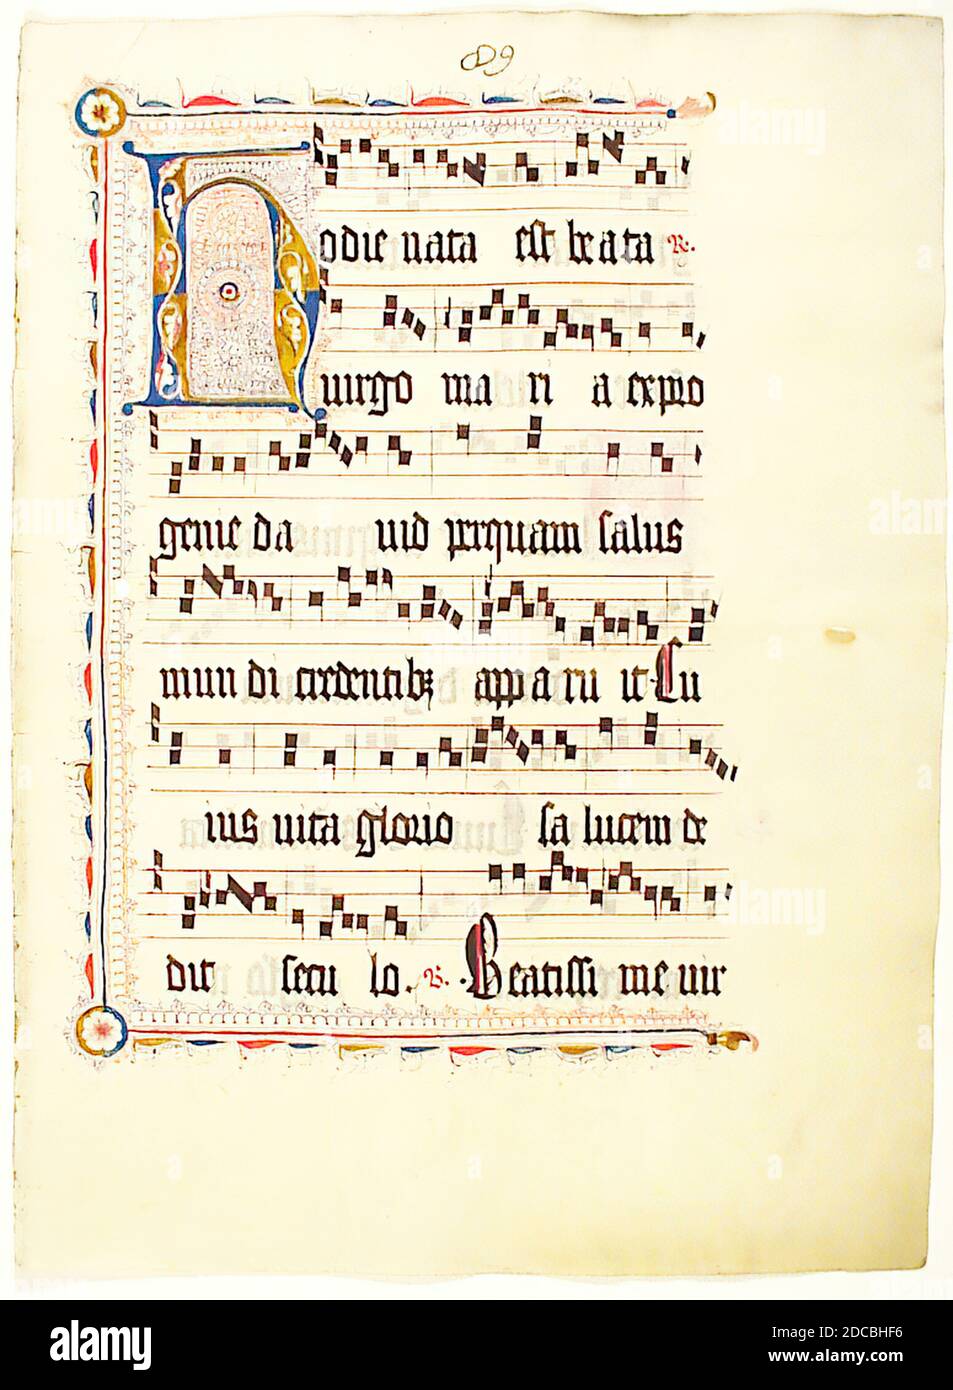 89
Hodie nata est beata R.
uirgo ma ri a ex pro
genie da uid per quam salus
mun di credentibꝫ appa ru it Cu
ius uita glorio sa lucem de
dit secu lo. V. Beatissi me uir
alamy
Image ID: 2DCBHF6
www.alamy.com